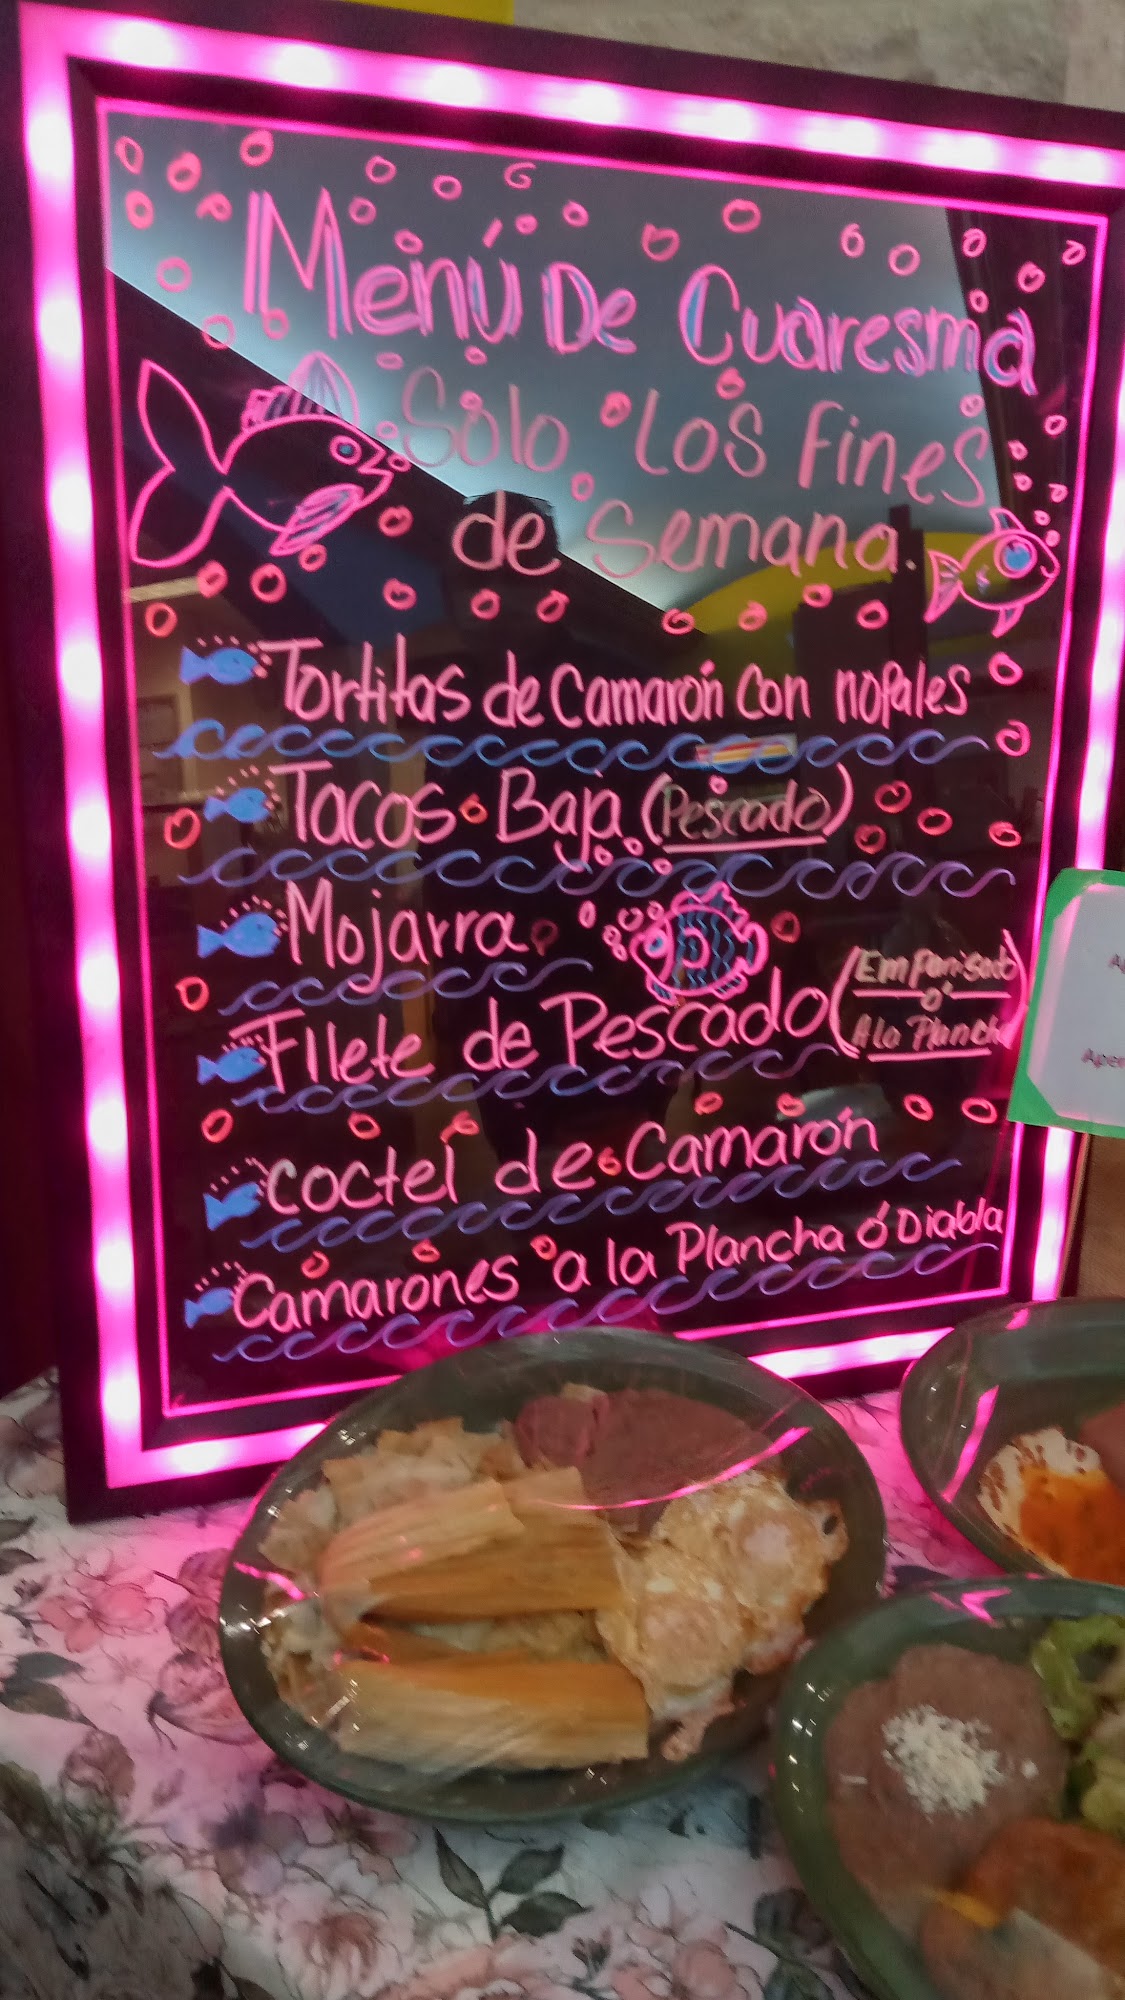 Menú De Cuaresma
Solo Los Fines
de Semana.
Tortitas de Camarón Con nopales
Tacos Baja (Pescado)
Mojarra
Filete de Pescado (Empanisado
ó
A la Plancha)
Coctel de Camarón
Camarones a la Plancha ó Diabla